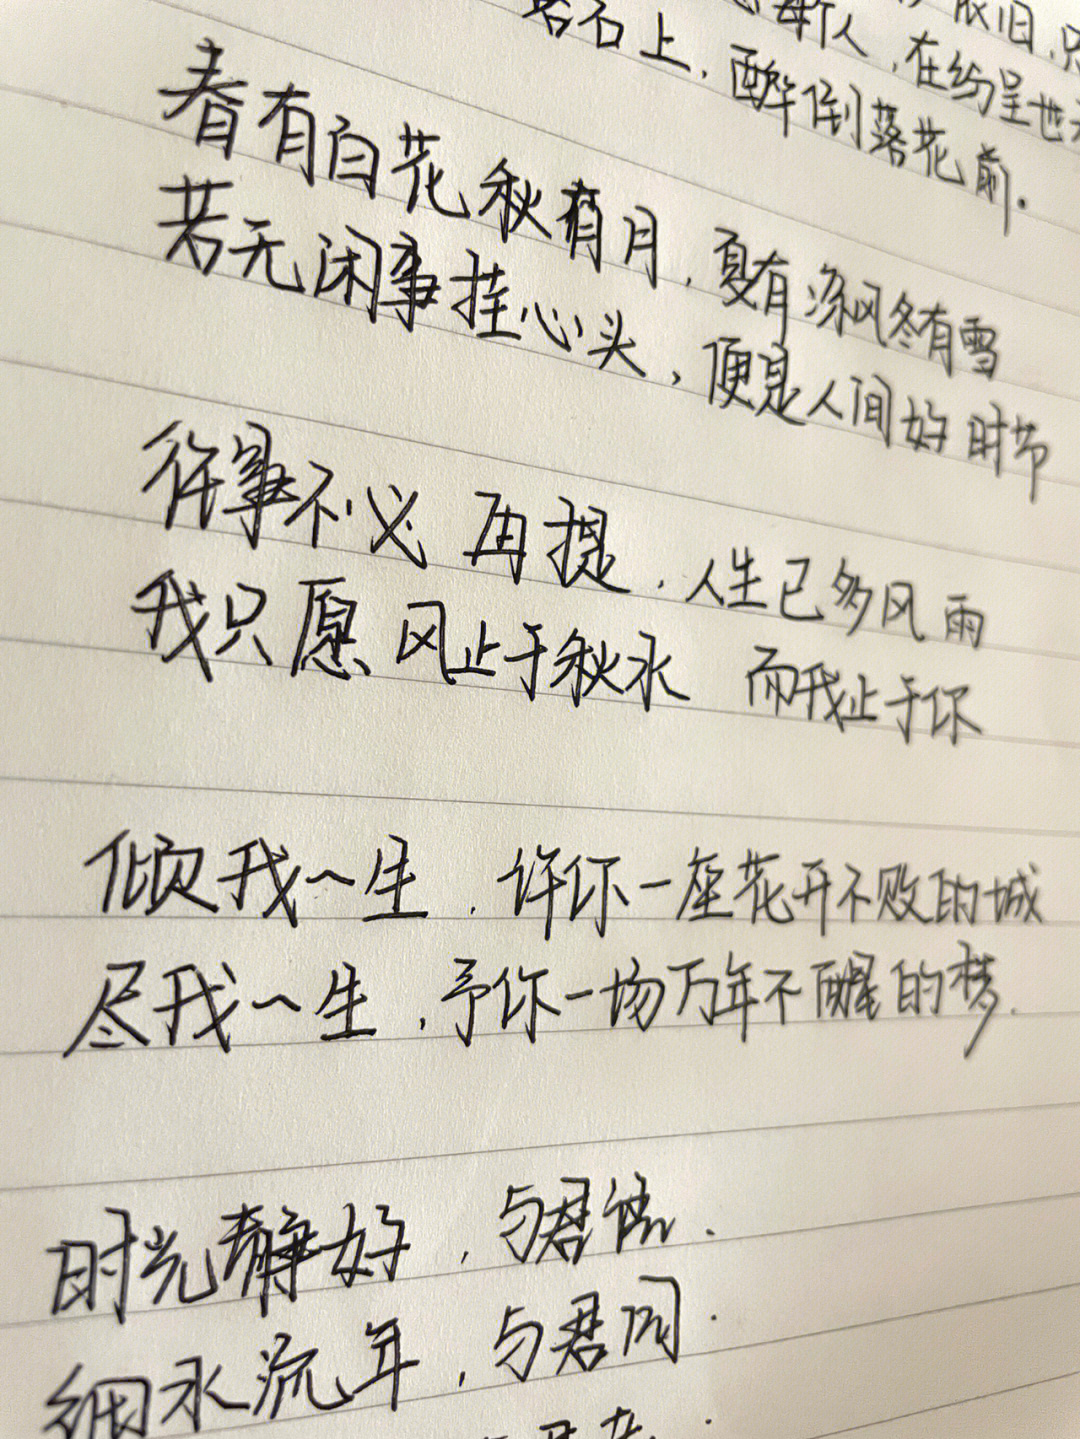 依旧,
每个人,在纷呈世
若石上,醉倒落花前.
春有百花秋有月,夏有凉风冬有雪
若无闲事挂心头,便是人间好时节
往事不必再提,人生已多风雨
我只愿风止于秋水 而我止于你
倾我一生,许你一座花开不败的城
尽我一生,予你一场万年不醒的梦.
时光静好,与君语.
细水流年,与君同.